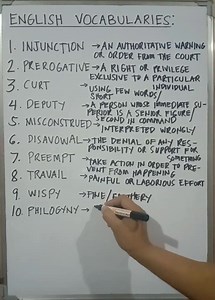 ENGLISH VOCABULARIES:
1. INJUNCTION → AN AUTHORITATIVE WARNING
OR ORDER FROM THE COURT
2. PREROGATIVE → A RIGHT OR PRIVILEGE
EXCLUSIVE TO A PARTICULAR
INDIVIDUAL
3. CURT → USING FEW WORDS/
SHORT
4. DEPUTY → A PERSON WHOSE IMMEDIATE SU-
PERIOR IS A SENIOR FIGURE/
SECOND IN COMMAND
5. MISCONSTRUED → INTERPRETED WRONGLY
6. DISAVOWAL → THE DENIAL OF ANY RES-
PONSIBILITY OR SUPPORT FOR
SOMETHING
7. PREEMPT → TAKE ACTION IN ORDER TO PRE-
VENT FROM HAPPENING
8. TRAVAIL → PAINFUL OR LABORIOUS EFFORT
9. WISPY → FINE/
10. PHILOGYNY →